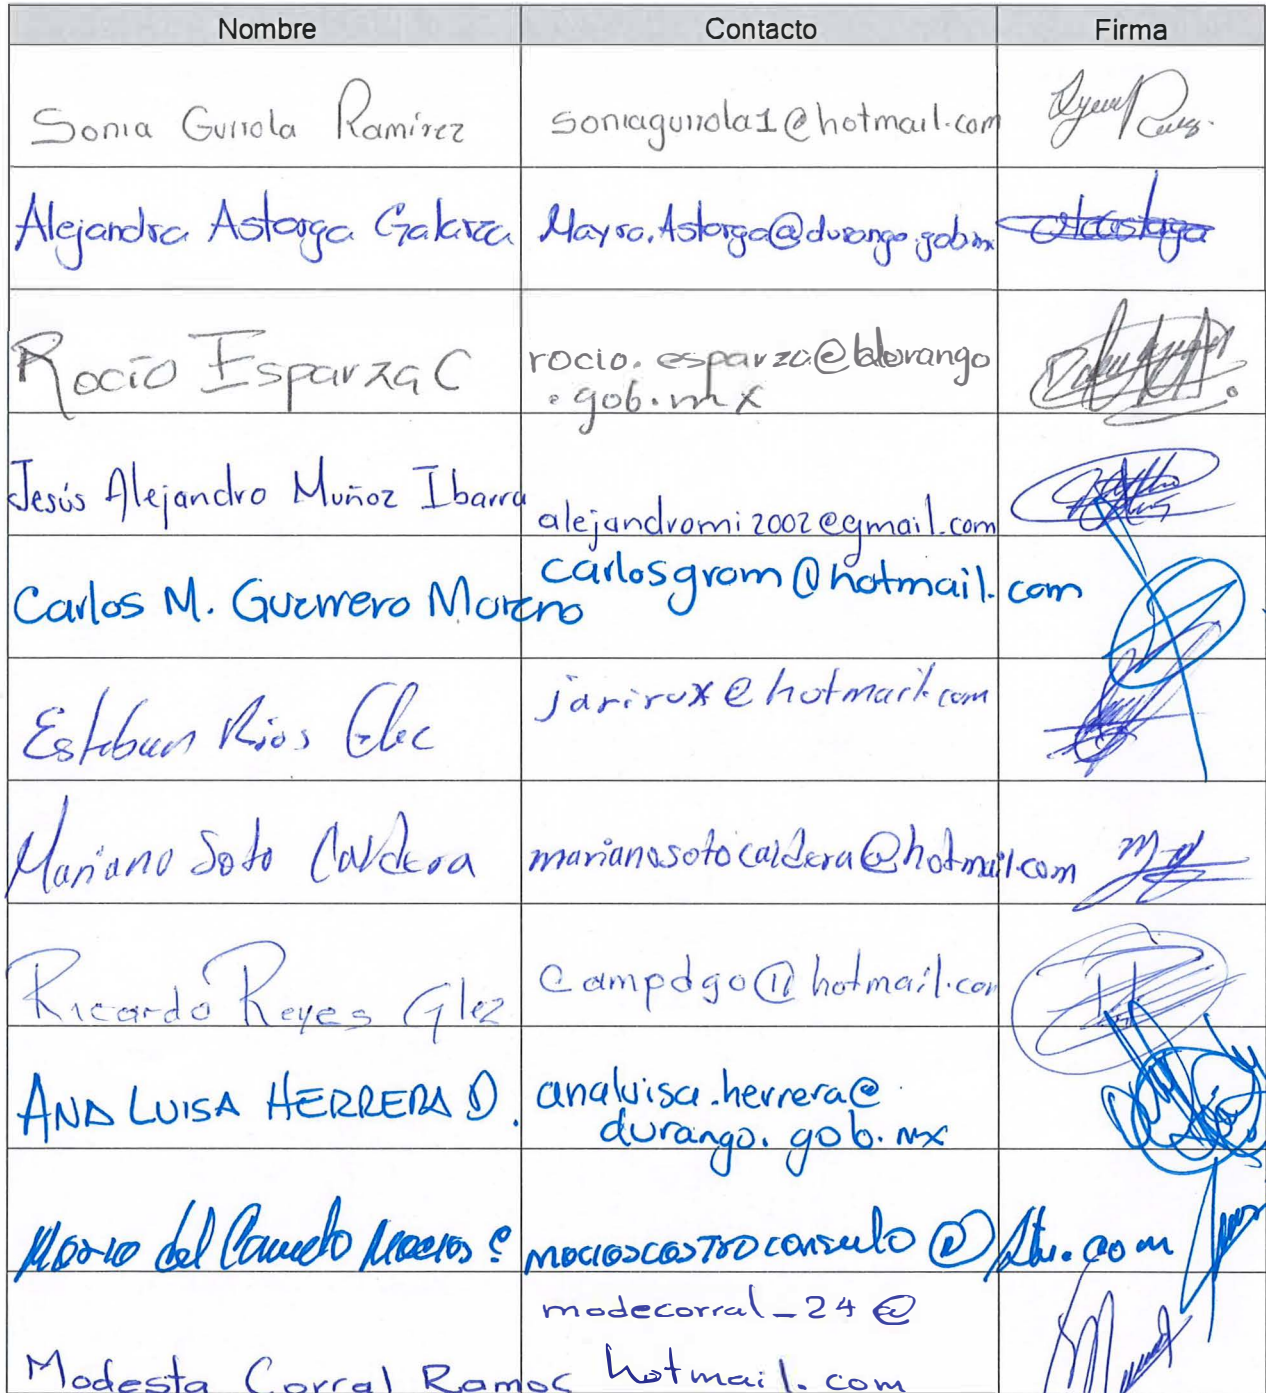 Nombre Contacto Firma
Sonia Guirola Ramírez soniaguirola1@hotmail.com
Alejandra Astorga Galarza Mayra.Astorga@durango.gob.mx
Rocío Esparza C rocio.esparza@durango
.gob.mx
Jesús Alejandro Muñoz Ibarra alejandromi2002@gmail.com
Carlos M. Guerrero Moreno carlosgrom@hotmail.com
Esteban Rios jarirox@hotmail.com
Mariano Soto Caldera marianosotocaldera@hotmail.com
Ricardo Reyes Glez campdgo@hotmail.com
ANA LUISA HERRERA D. analuisa.herrera@
durango.gob.mx
del Macias
modecorral_24@
Modesta Corral Ramos hotmail.com